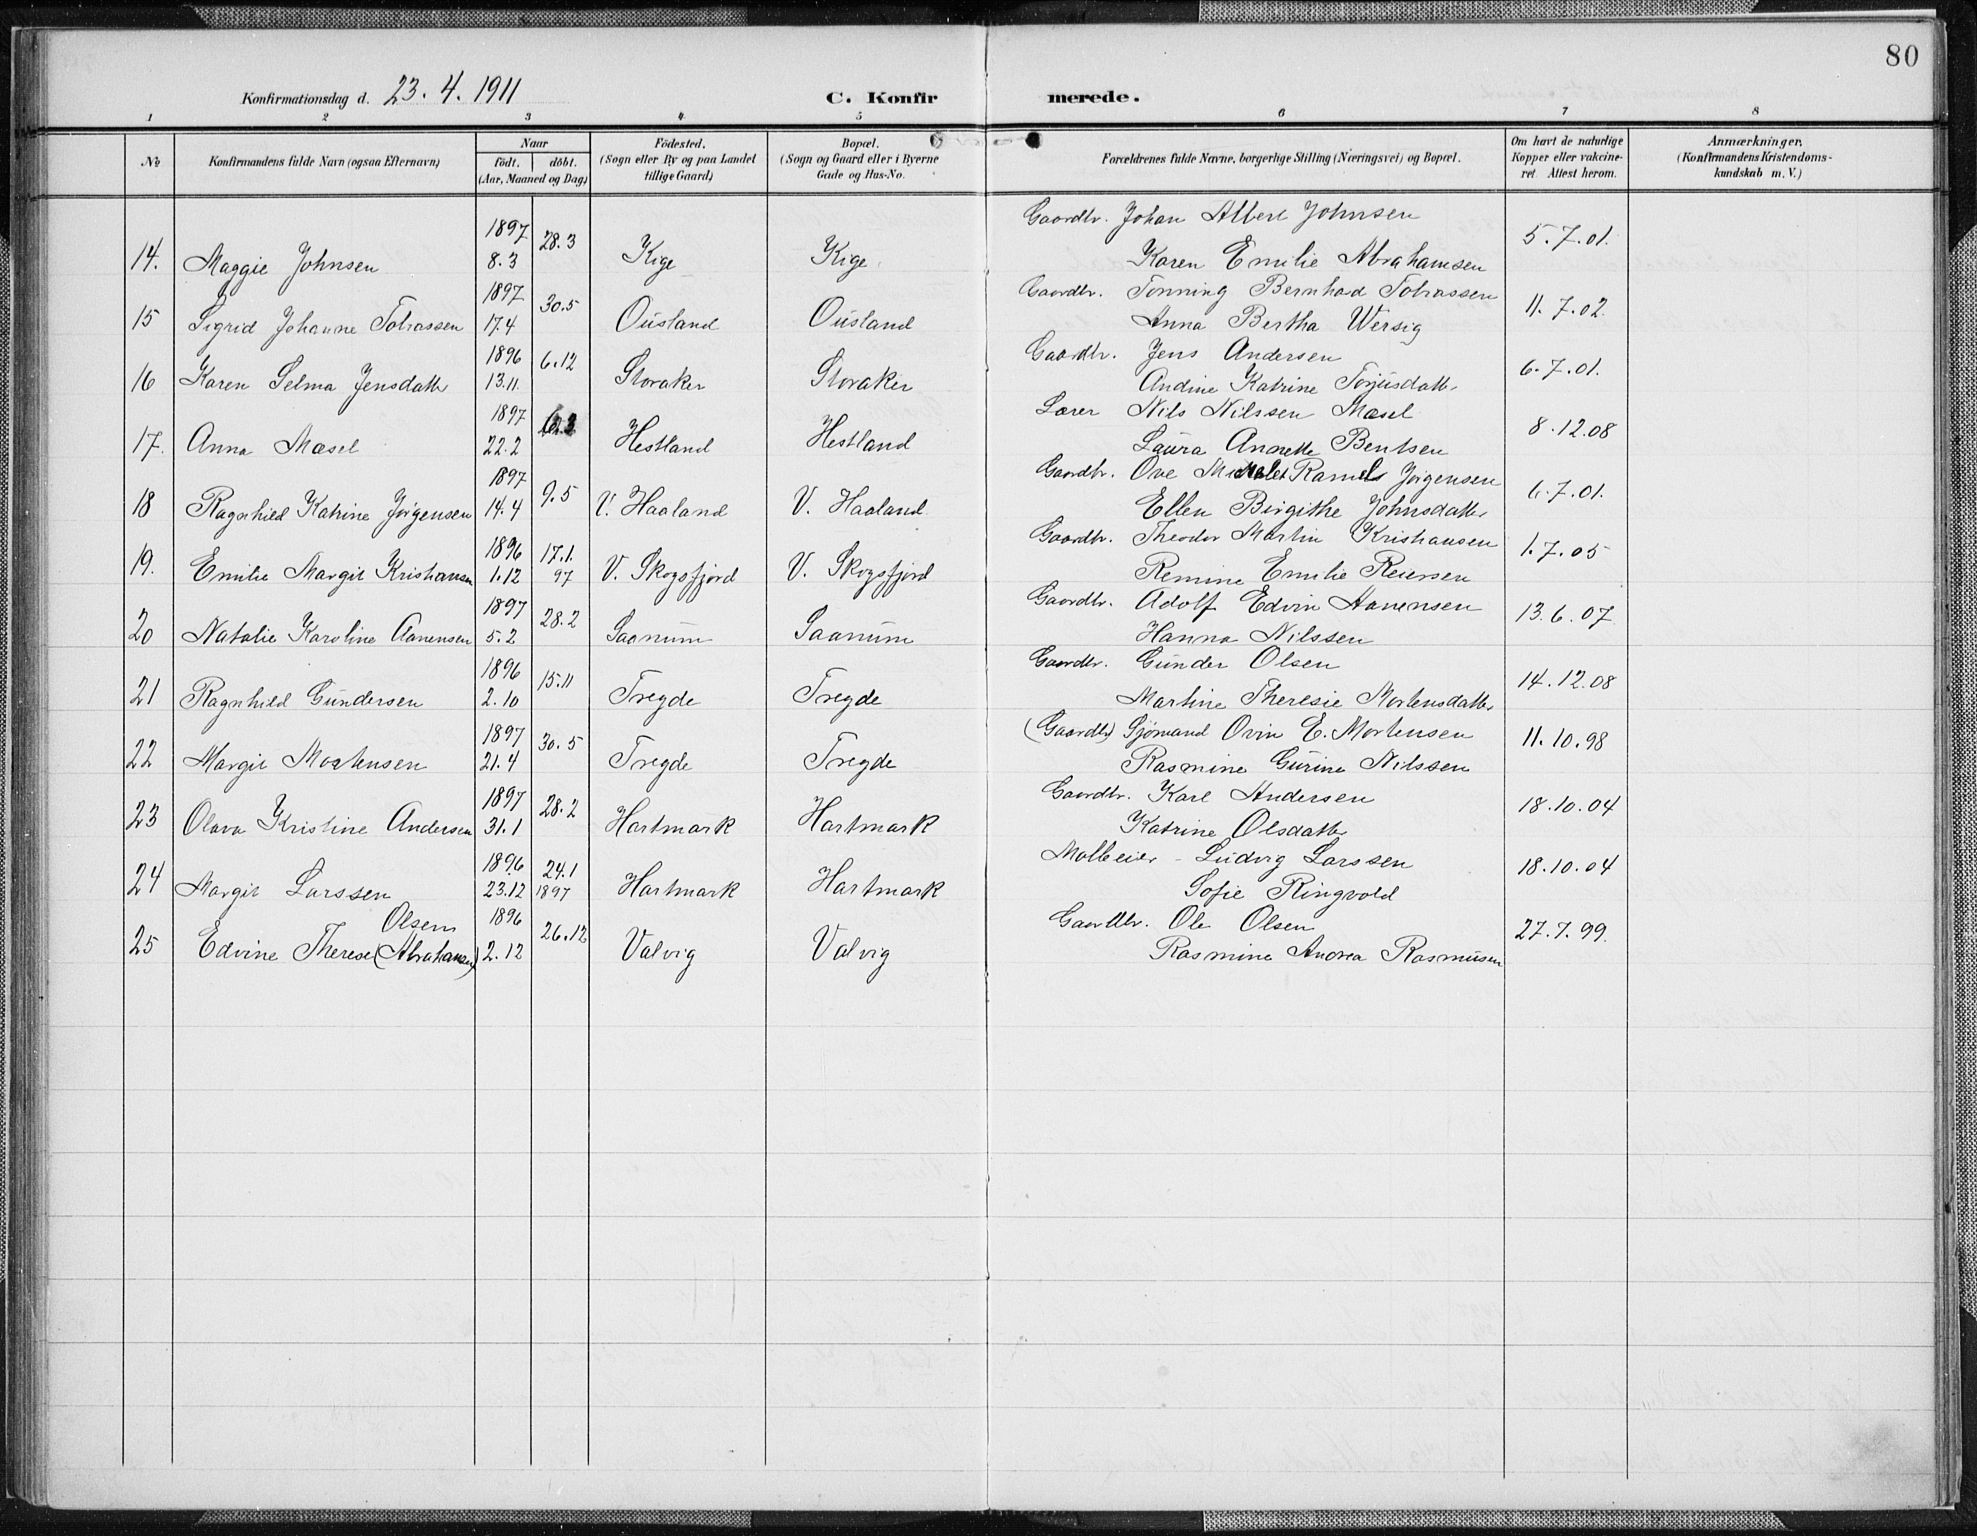 80
Konfirmationsdag d. 23. 4. 1911 C. Konfirmerede.
1 2 3 4 5 6 7 8
No Konfirmandens fulde Navn (ogsaa Efternavn) Naar født. døbt. (Aar, Maaned og Dag) Fødested. (Sogn eller By og paa Landet tillige Gaard) Bopæl. (Sogn og Gaard eller i Byerne Gade og Hus-No. Forældrenes fulde Navne, borgerlige Stilling (Næringsvei) og Bopæl. Om havt de naturlige Kopper eller vakcineret. Attest herom. Anmærkninger, (Konfirmandens Kristendomskundskab m. V.)
1897 28.3 Gaardbr. Johan Albert Johnsen 5.7.01.
14. Maggie Johnsen 8.3 Kige Kige Karen Emilie Abrahamsen
1897 30.5 Gaardbr. Tønning Bernhard Tobiassen 11.7.02.
15 Sigrid Johanne Tobiassen 17.4 Ousland Ousland Anna Bertha Wersig
1896 6.12 Gaardbr. Jens Andersen 6.7.01.
16 Karen Selma Jensdatter 13.11. Storaker Storaker Andine Katrine Torjusdatter
1897 Lærer Nils Nilssen Mæsel 8.12.08
17. Anna Mæsel 22.2 Hestland Hestland Laura Annette Bentsen
1897 9.5 Gaardbr. Ove Jørgensen 6.7.01.
18 Ragnhild Katrine Jørgensen 14.4 V. Haaland V. Haaland Ellen Birgithe Johnsdatter
1896 17.1. Gaardbr. Theodor Martin Kristiansen 1.7.05
19. Emilie Margit Kristiansen 1.12 97 V. Skogsfjord V. Skogsfjord Remine Emilie Reiersen
1897 28.2 Gaardbr. Adolf Edvin Aanensen 13.6.07
20 Natalie Karoline Aanensen 5.2 Saanum Saanum Hanna Nilssen
1896 15.11 Gaardbr. Gunder Olsen 14.12.08
21 Ragnhild Gundersen 2.10 Tregde Tregde Martine Theresie Mortensdatter
1897 30.5 (Gaardbr) Sjømand Ovin E. Mortensen 11.10.98
22 Margit Mortensen 21.4 Tregde Tregde Rasmine Gurine Nilssen
1897 28.2 Gaardbr. Karl Andersen 18.10.04
23 Olava Kristine Andersen 31.1 Hartmark Hartmark Katrine Olsdatter
1896 24.1 Ludvig Larssen 18.10.04
24 Margit Larssen 23.12 1897 Hartmark Hartmark Sofie Ringvold
Olsen 1896 26.12 Gaardbr. Ole Olsen 27.7.99.
25 Edvine Therese (Abrahamsen) 2.12 Valvig Valvig Rasmine Andrea Rasmusen